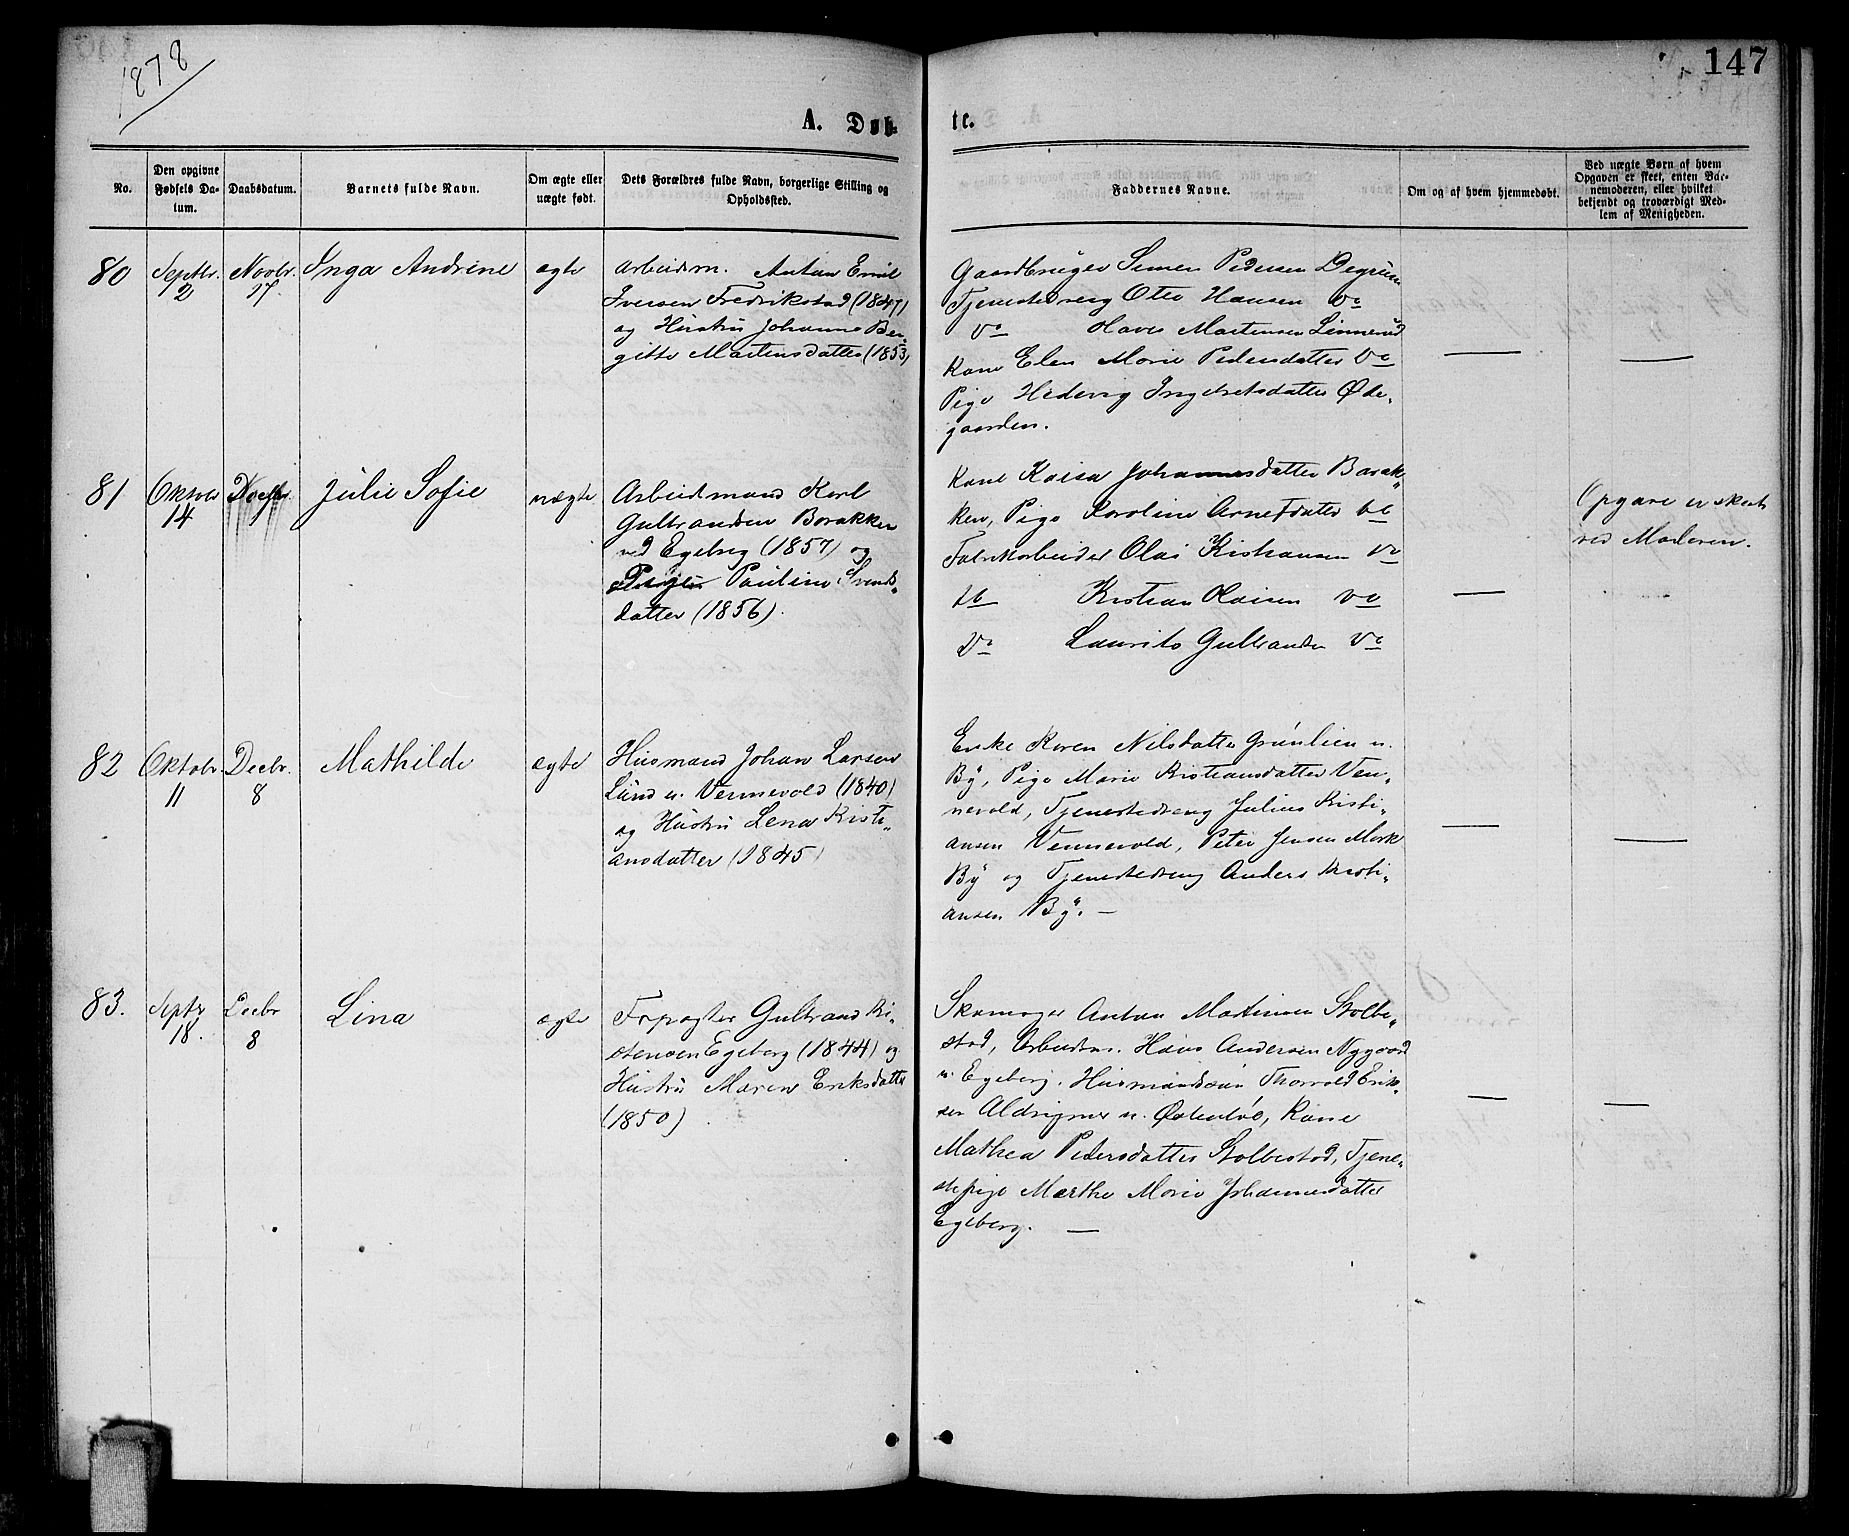 1878
147
A. Døb-
te.
No.
Den opgivne
Fødsels Da-
tum.
Daabsdatum.
Barnets fulde Navn.
Om ægte eller
uægte født.
Dets Forældres fulde Navn, borgerlige Stilling og
Opholdssted.
Faddernes Navne.
Om og af hvem hjemmedøbt.
Ved uægte Børn af hvem
Opgaven er skeet, enten Bar-
nemoderen, eller hvilket
bekjendt og troværdigt Med-
lem af Menigheden.
80
Septbr.
2
Novbr.
17.
Inga Andrine
ægte
Arbeidsm. Anton Emil
Iversen Fredrikstad (1847)
og Hustru Johanne Ber-
gitte Martinsdatter (1853)
Gaardbruger Simen Pedersen Degrum
Tjenestedreng Otto Hansen Do
Do Martinsen Linnerud
Kone Elen Marie Pedersdatter Do
Pige Hedevig Ingebretsdatter Øde-
gaarden.
81
Oktobr
14
Julie Sofie
uægte
Arbeidsmand Karl
Gulbrandsen Barakken
ved Egeberg (1857) og
Pige Pauline Svends-
datter (1856).
Kone Kaisa Johannesdatter Barak-
ken, Pige Karoline Arnesdatter Do
Fabrikarbeider Olai Kristiansen Do
Do Kristian Olaisen Do
Do Laurits Gulbrandsen Do
Opgave er skeet
ved Moderen.
82
Oktobr.
11
Decbr.
8
Mathilde
ægte
Husmand Johan Larsen
Lund u. Vennevold (1840)
og Hustru Lena Kristi-
ansdatter (1845)
Enke Karen Nilsdatter Grønlien u.
By, Pige Marie Kristiansdatter Ven-
nevold, Tjenestedreng Julius Kristi-
ansen Vennevold, Peter Jensen Mork
By og Tjenestedreng Anders Kristi-
ansen By. —
83.
Septr
18.
Decbr
8
Lina
ægte
Forpagter Gulbrand Kri-
stensen Egeberg (1844) og
Hustru Maren Eriksdatter
(1850)
Skomager Anton Martinsen Stolbe-
stad, Arbeidsm. Hans Andersen Nygaard
u. Egeberg. Husmandssøn Thorvald Erik-
sen u. Kone
Mathea Pedersdatter Stolbestad, Tjene-
stepige Marthe Marie Johannesdatter
Egeberg. —